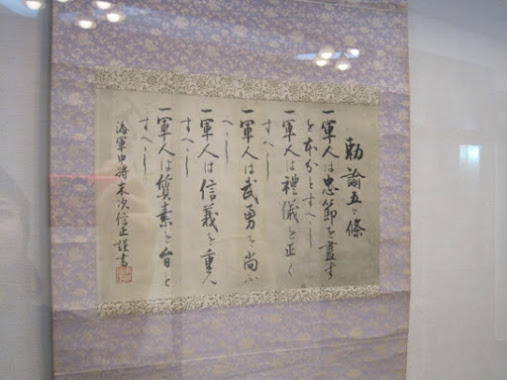 勅諭五ヶ條
一軍人は忠節を盡す
を本分とすへし
一軍人は禮儀を正く
すへし
一軍人は武勇を尚ふ
へし
一軍人は信義を重ん
すへし
一軍人は質素を旨と
すへし
海軍中將末次信正謹書